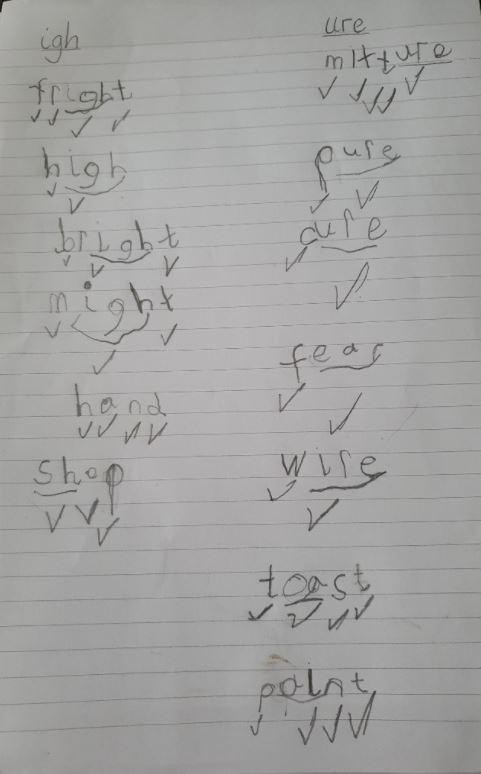 igh
fright
high
bright
might
hand
shop
ure
mixture
pure
cure
fear
wire
toast